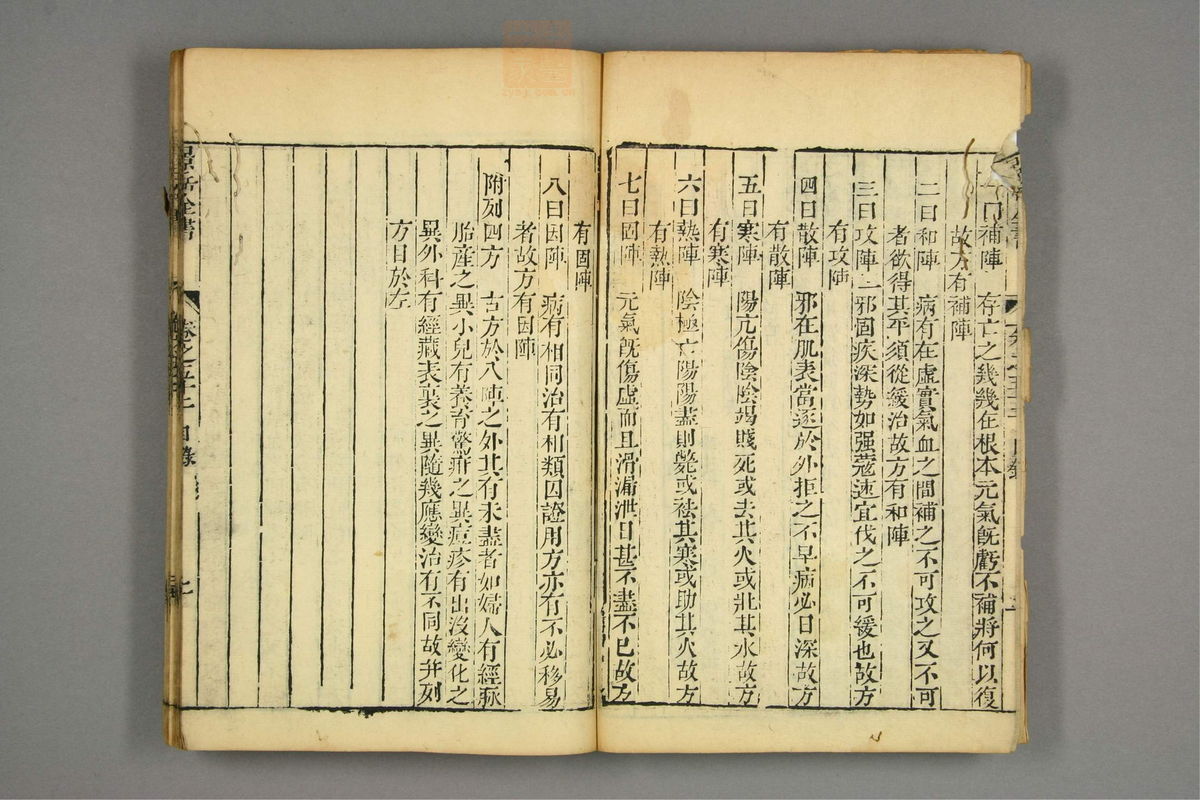 一曰補陣 存亡之幾幾在根本元氣既虧不補將何以復
故方有補陣
二曰和陣 病有在虛實氣血之間補之不可攻之又不可
者欲得其平須從緩治故方有和陣
三曰攻陣 邪固疾深勢如强蔻速宜伐之不可緩也故方
有攻陣
四曰散陣 邪在肌表當逐於外拒之不早病必日深故方
有散陣
五曰寒陣 陽亢傷陰陰竭賤死或去其火或壯其水故方
有寒陣
六曰熱陣 陰極亡陽陽盡則斃或祛其寒或助其火故方
有熱陣
七曰固陣 元氣既傷虛而且滑漏泄日甚不盡不已故方
有固陣
八曰因陣 病有相同治有相類因證用方亦有不必移易
者故方有因陣
附列四方 古方於八陣之外其有未盡者如婦人有經脉
胎產之異小兒有養育驚疳之異痘疹有出沒變化之
異外科有經藏表裏之異隨幾應變治有不同故并列
方目於左
景岳全書 卷之五十一 目錄